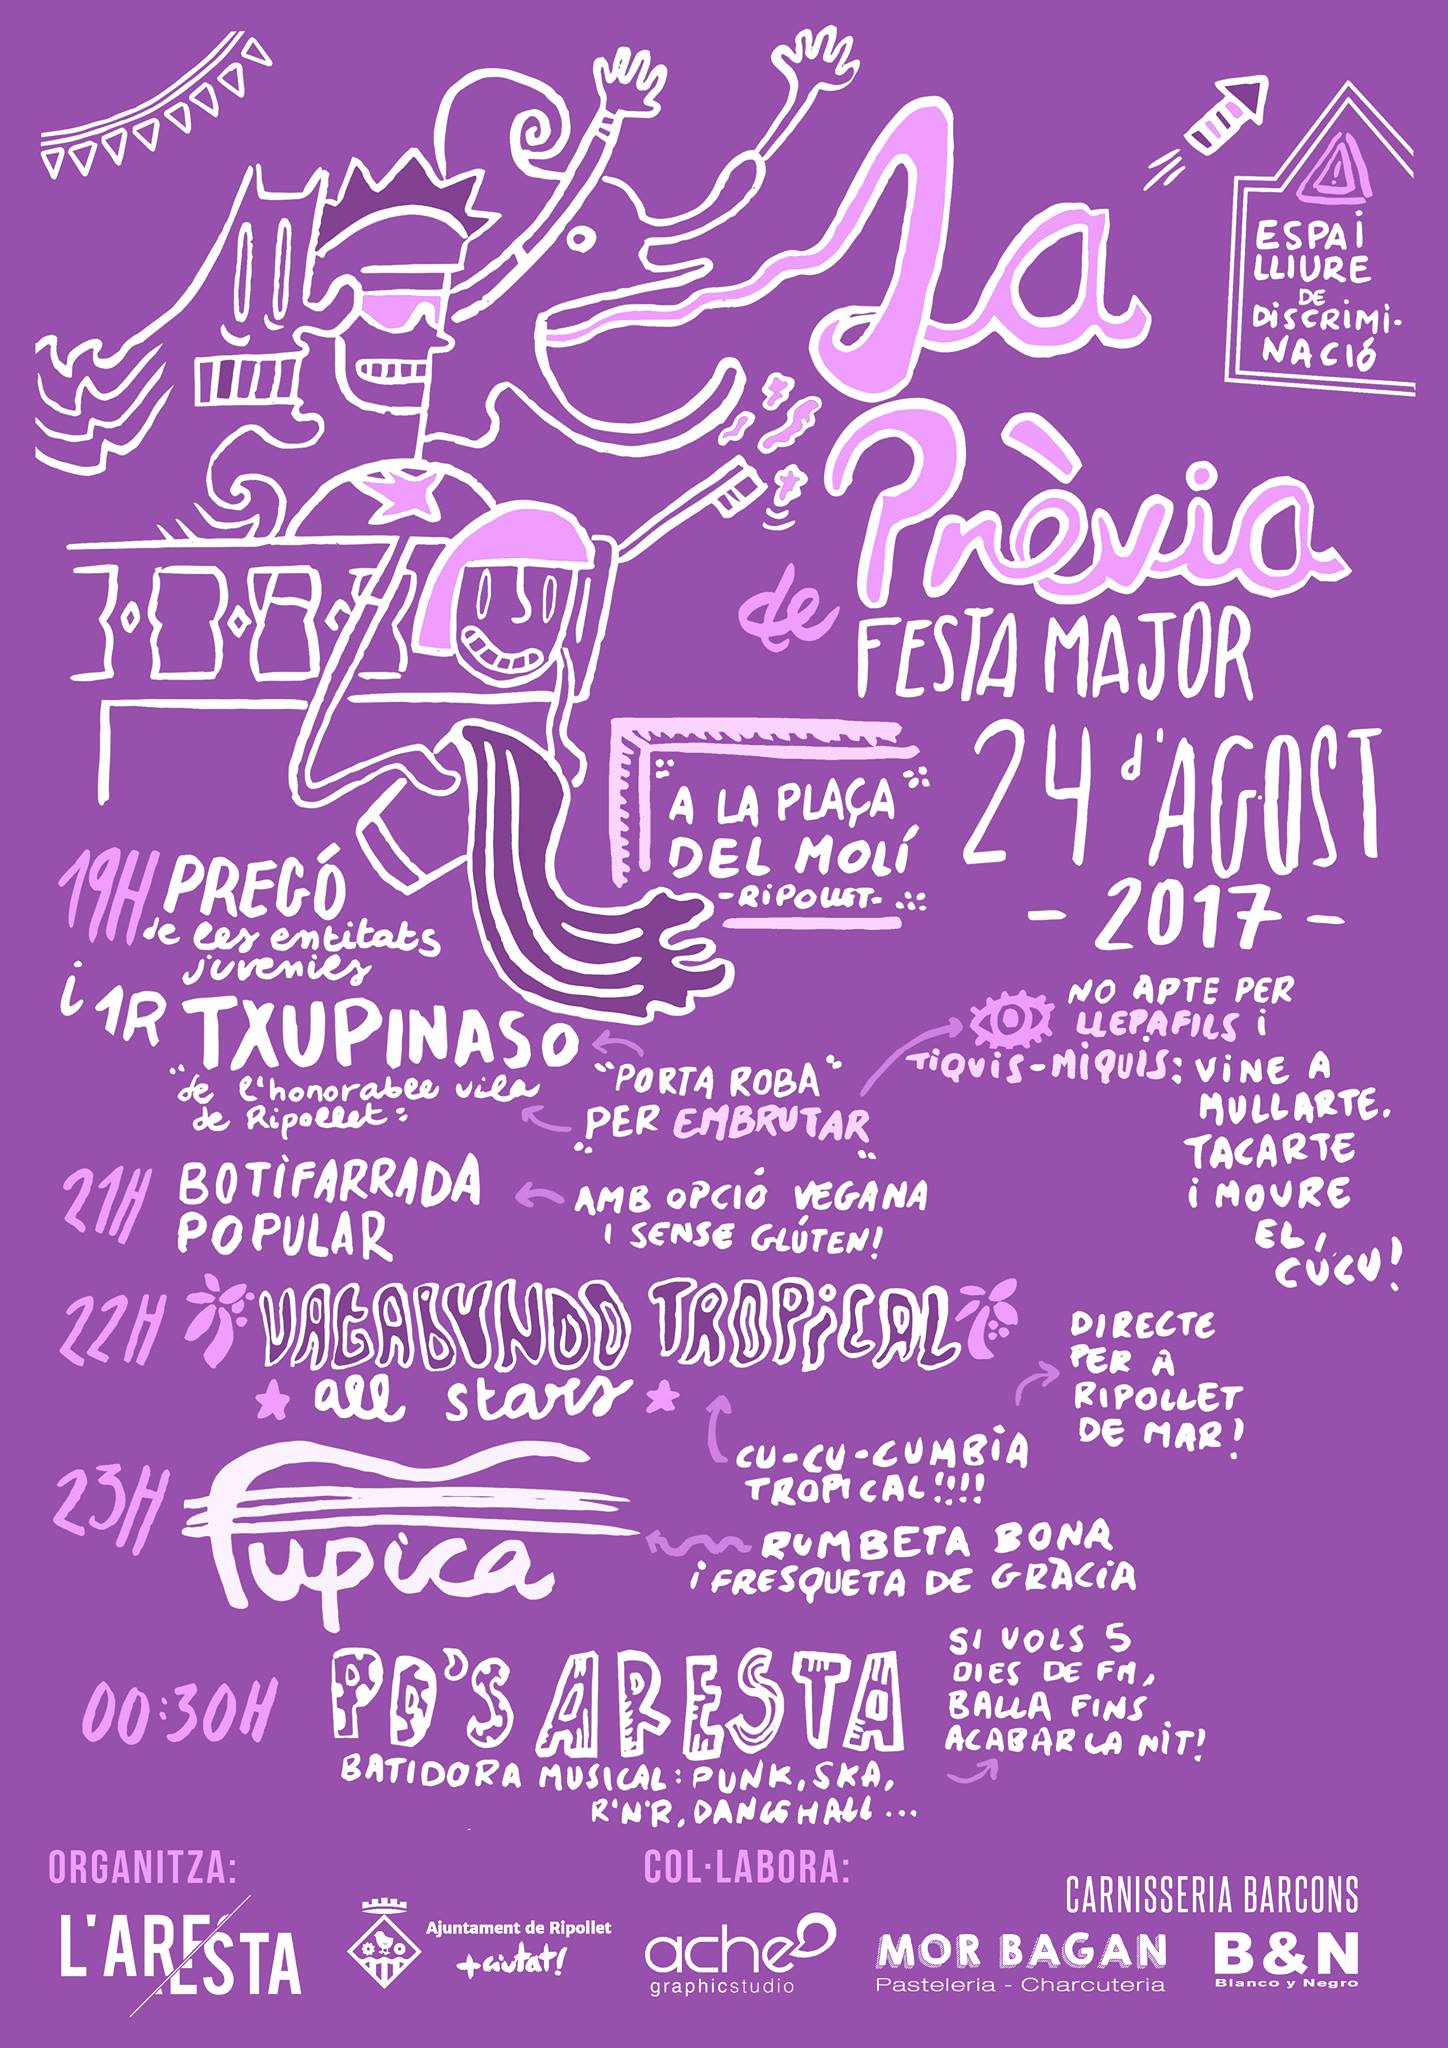 La
Prèvia
de
FESTA MAJOR
ESPAI
LLIURE
DE
DISCRIMI-
NACIÓ
24 d'AGOST
- 2017 -
A LA PLAÇA
DEL MOLÍ
-RIPOLLET-
19H PREGÓ
de les entitats
juvenils
i 1R TXUPINASO
"de l'honorable vila
de Ripollet:
"PORTA ROBA"
PER EMBRUTAR
NO APTE PER
LLEPAFILS i
TIQUIS-MIQUIS: VINE A
MULLARTE.
TACARTE
i MOURE
EL
CUCU!
21H BOTIFARRADA
POPULAR
AMB OPCIÓ VEGANA
I SENSE GLÚTEN!
22H VAGABUNDO TROPICAL
all stars
CU-CU-CUMBIA
TROPICAL!!!!
DIRECTE
PER A
RIPOLLET
DE MAR!
23H Tupica
RUMBETA BONA
i FRESQUETA DE GRÀCIA
00:30H PD'S ARESTA
BATIDORA MUSICAL: PUNK, SKA,
R'N'R, DANCEHALL...
SI VOLS 5
DIES DE FM,
BALLA FINS
ACABAR LA NIT!
ORGANITZA:
L'ARESTA
Ajuntament de Ripollet
+ciutat!
COL·LABORA:
ache
graphicstudio
MOR BAGAN
Pasteleria - Charcuteria
CARNISSERIA BARCONS
B&N
Blanco y Negro